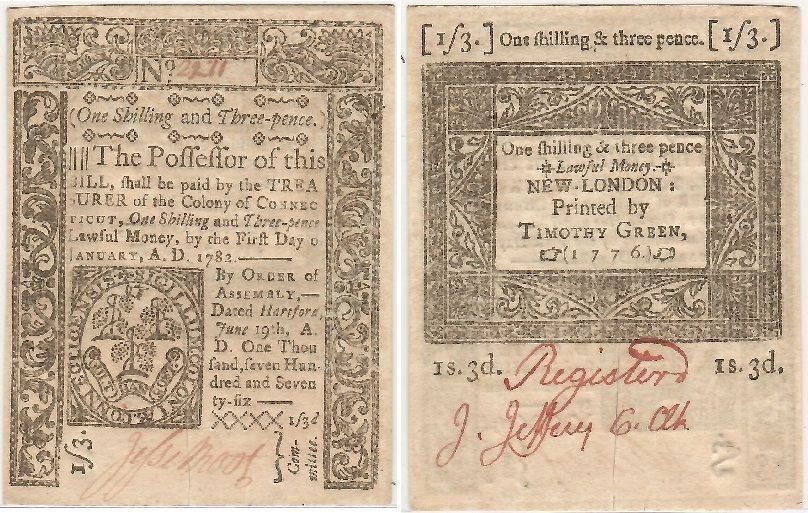 No 2411
(One Shilling and Three-pence.)
The Poſſeſſor of this
BILL, ſhall be paid by the TREA
SURER of the Colony of CONNEC
TICUT, One Shilling and Three-pence
Lawful Money, by the Firſt Day o
JANUARY, A. D. 1782.
By ORDER of
ASSEMBLY,—
Dated Hartford,
June 19th, A.
D. One Thou
ſand, ſeven Hun-
dred and Seven
ty-ſix —
1/3d
1/3.
Com-
mittee.
[1/3.] One ſhilling & three pence. [1/3.]
One ſhilling & three pence
Lawful Money.
NEW-LONDON:
Printed by
TIMOTHY GREEN,
(1776.)
1s. 3d. Registerd 1s. 3d.
J. Jeffery C. Clk